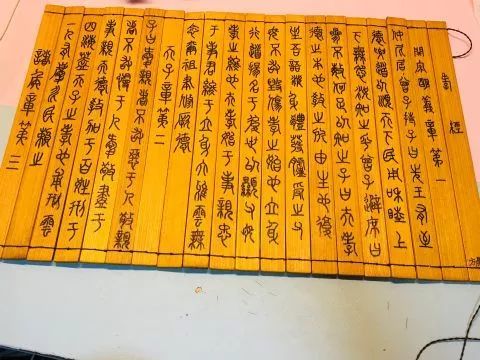 孝經
開宗明義章第一
仲尼居曾子侍子曰先王有至
德要道以順天下民用和睦上
下無怨汝知之乎曾子避席曰
參不敏何足以知之子曰夫孝
德之本也教之所由生也復
坐吾語汝身體髮膚受之父
母不敢毀傷孝之始也立身
行道揚名于後世以顯父母
孝之終也夫孝始于事親忠
于事君終于立身大雅雲無
念爾祖聿修厥德
天子章第二
子曰愛親者不敢惡于人敬親
者不敢慢于人愛敬盡于
事親而德教加于百姓刑于
四海蓋天子之孝也甫刑雲
一人有慶兆民賴之
諸侯章第三